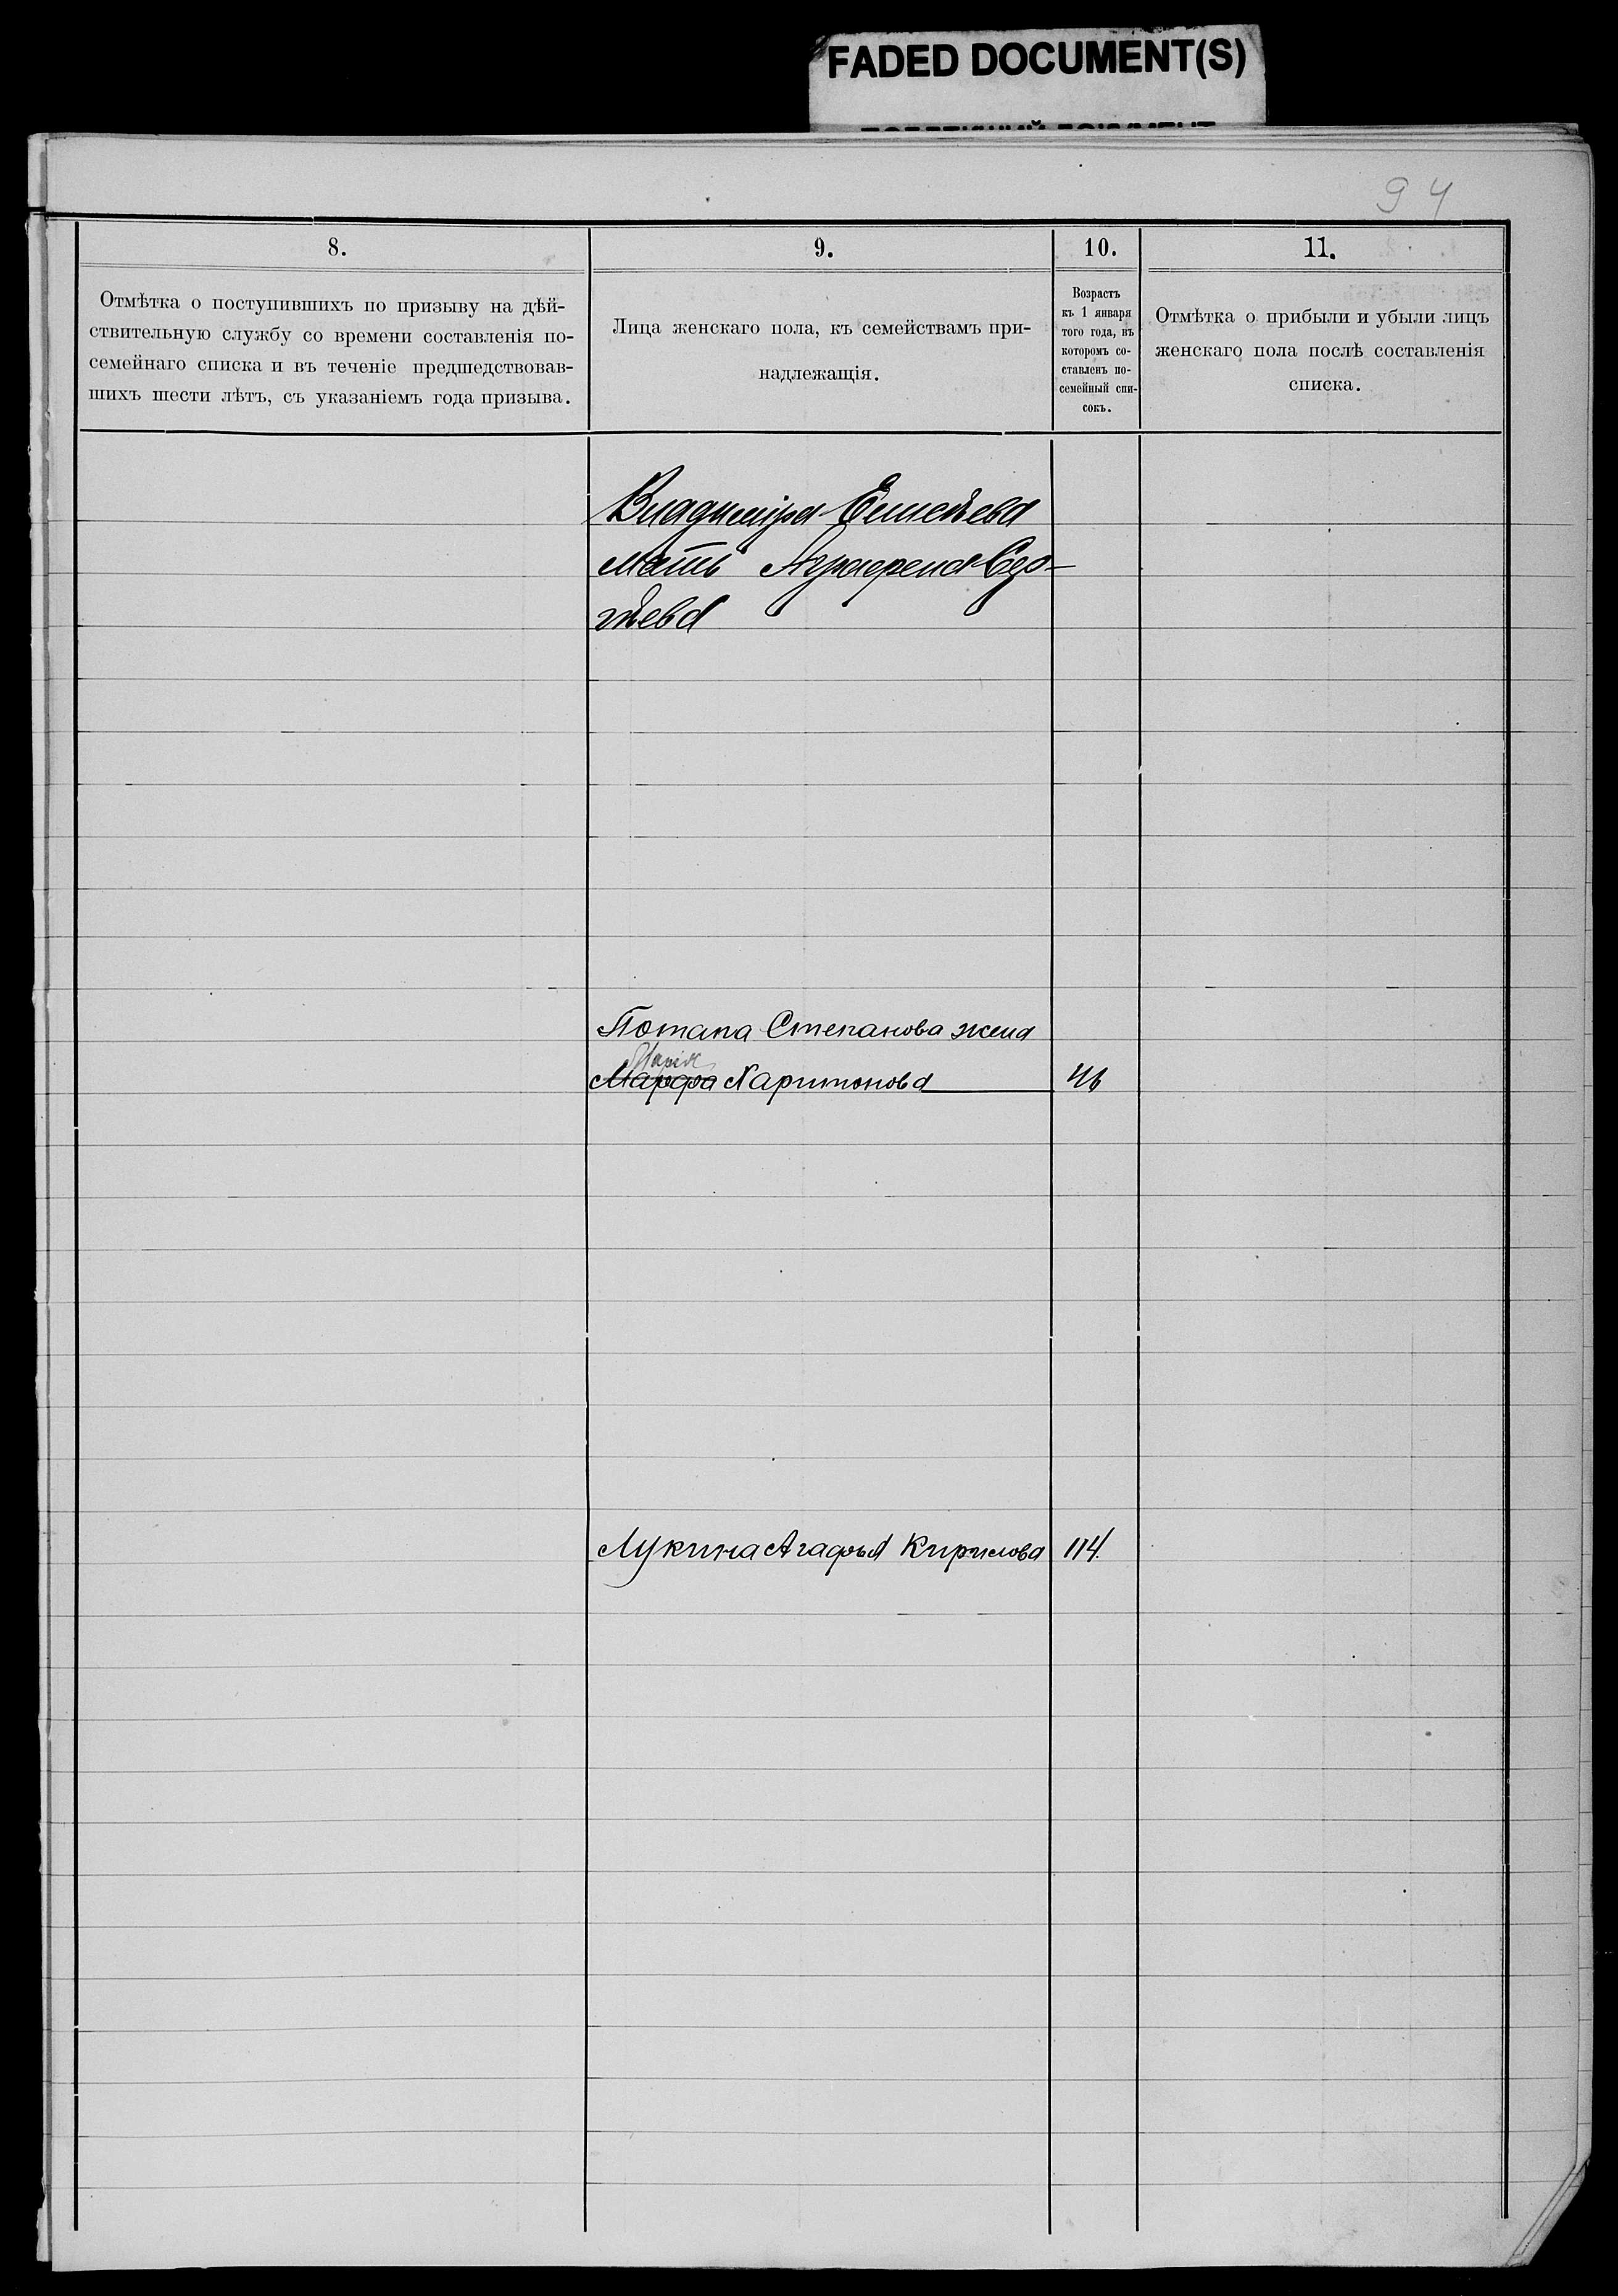 FADED DOCUMENT(S)
94
8.
Отмѣтка о поступившихъ по призыву на дѣй-
ствительную службу со времени составленія по-
семейнаго списка и въ теченіе предшедствовав-
шихъ шести лѣтъ, съ указаніемъ года призыва.
9.
Лица женскаго пола, къ семействамъ при-
надлежащія.
10.
Возрастъ
къ 1 января
того года, въ
которомъ со-
ставленъ по-
семейный спи-
сокъ.
11.
Отмѣтка о прибыли и убыли лицъ
женскаго пола послѣ составленія
списка.
Владиміра
мать
Потапа Степанова жена
Марія
Марфа Харитонова 46
Лукина Агафья Кирилова 114.